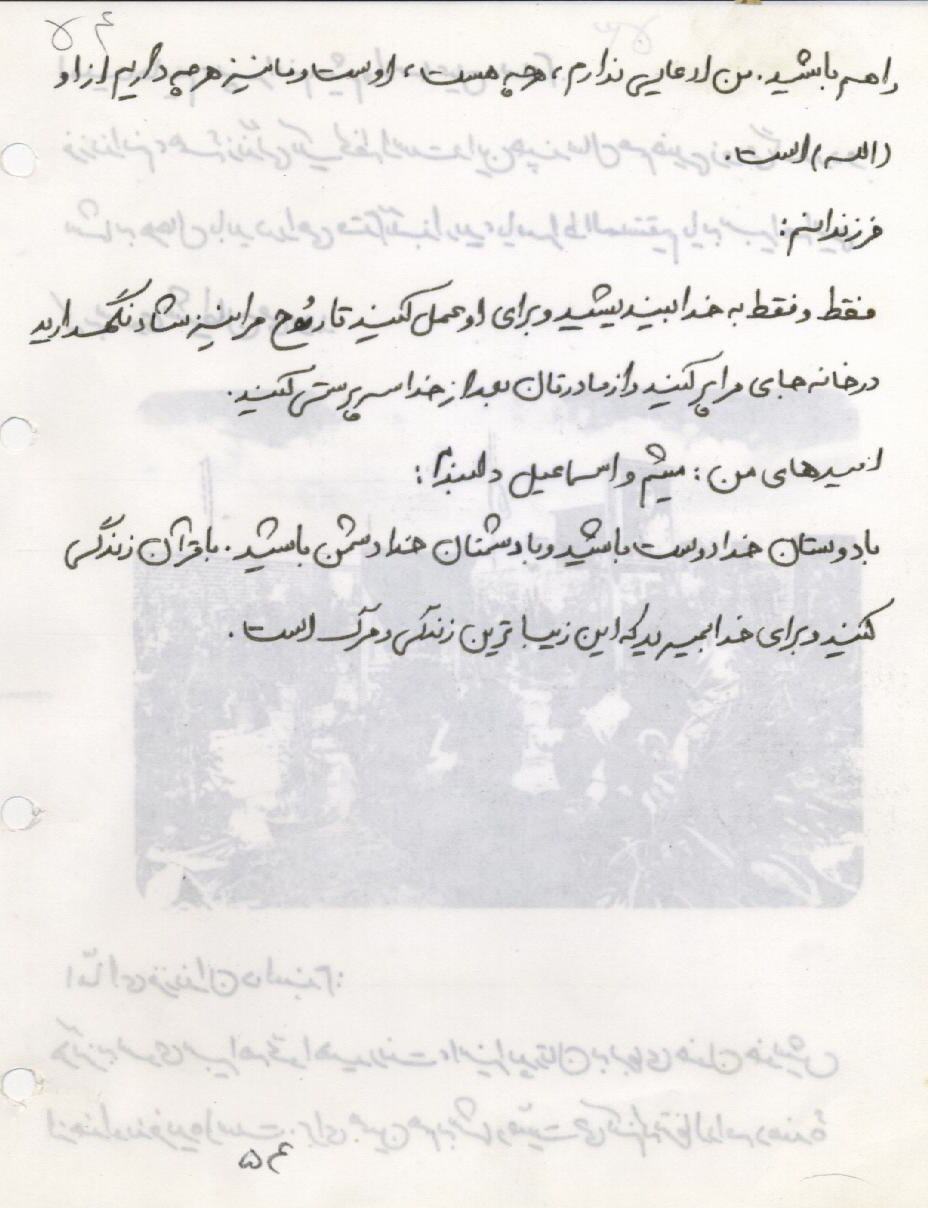 ۵۴
راهم باشید. من ادعایی ندارم، هرچه هست، اوست و ما نیز هرچه داریم از او
(الله) است.
فرزندانم:
فقط و فقط به خدا بیندیشید و برای او عمل کنید تا روح مرا نیز شاد نگهدارید
در خانه جای مرا پر کنید و از مادرتان بعد از خدا سرپرستی کنید.
امیدهای من: میثم و اسماعیل دلبندم:
با دوستان خدا دوست باشید و با دشمنان خدا دشمن باشید. با قرآن زندگی
کنید و برای خدا بمیرید که این زیباترین زندگی و مرگ است.
۵۴